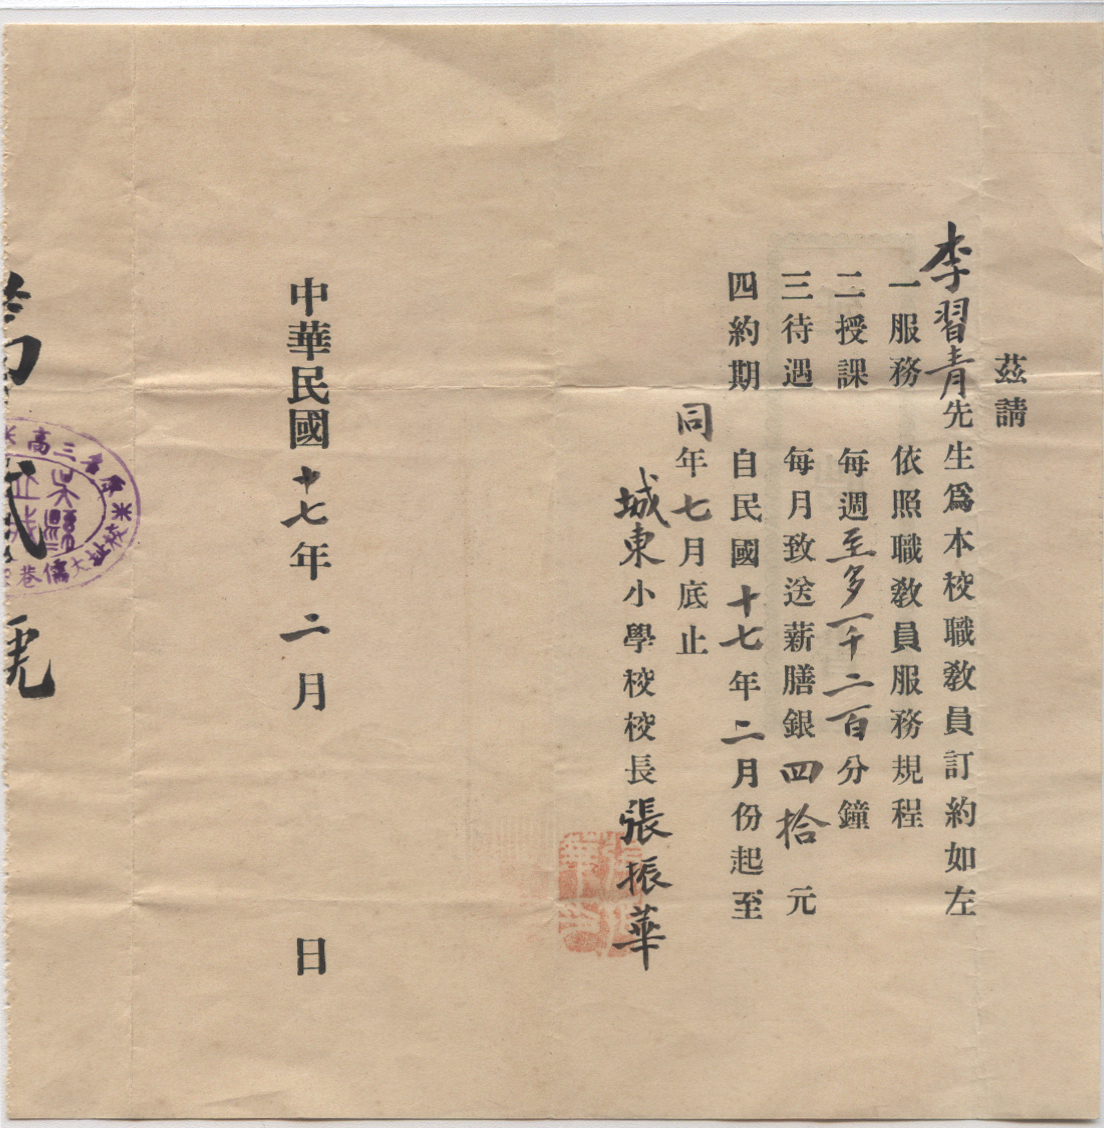 茲請
李習青先生爲本校職教員訂約如左
一服務 依照職教員服務規程
二授課 每週至多一千二百分鐘
三待遇 每月致送薪膳銀四拾元
四約期 自民國十七年二月份起至
同年七月底止
城東小學校校長張振華
中華民國十七年二月 日
號